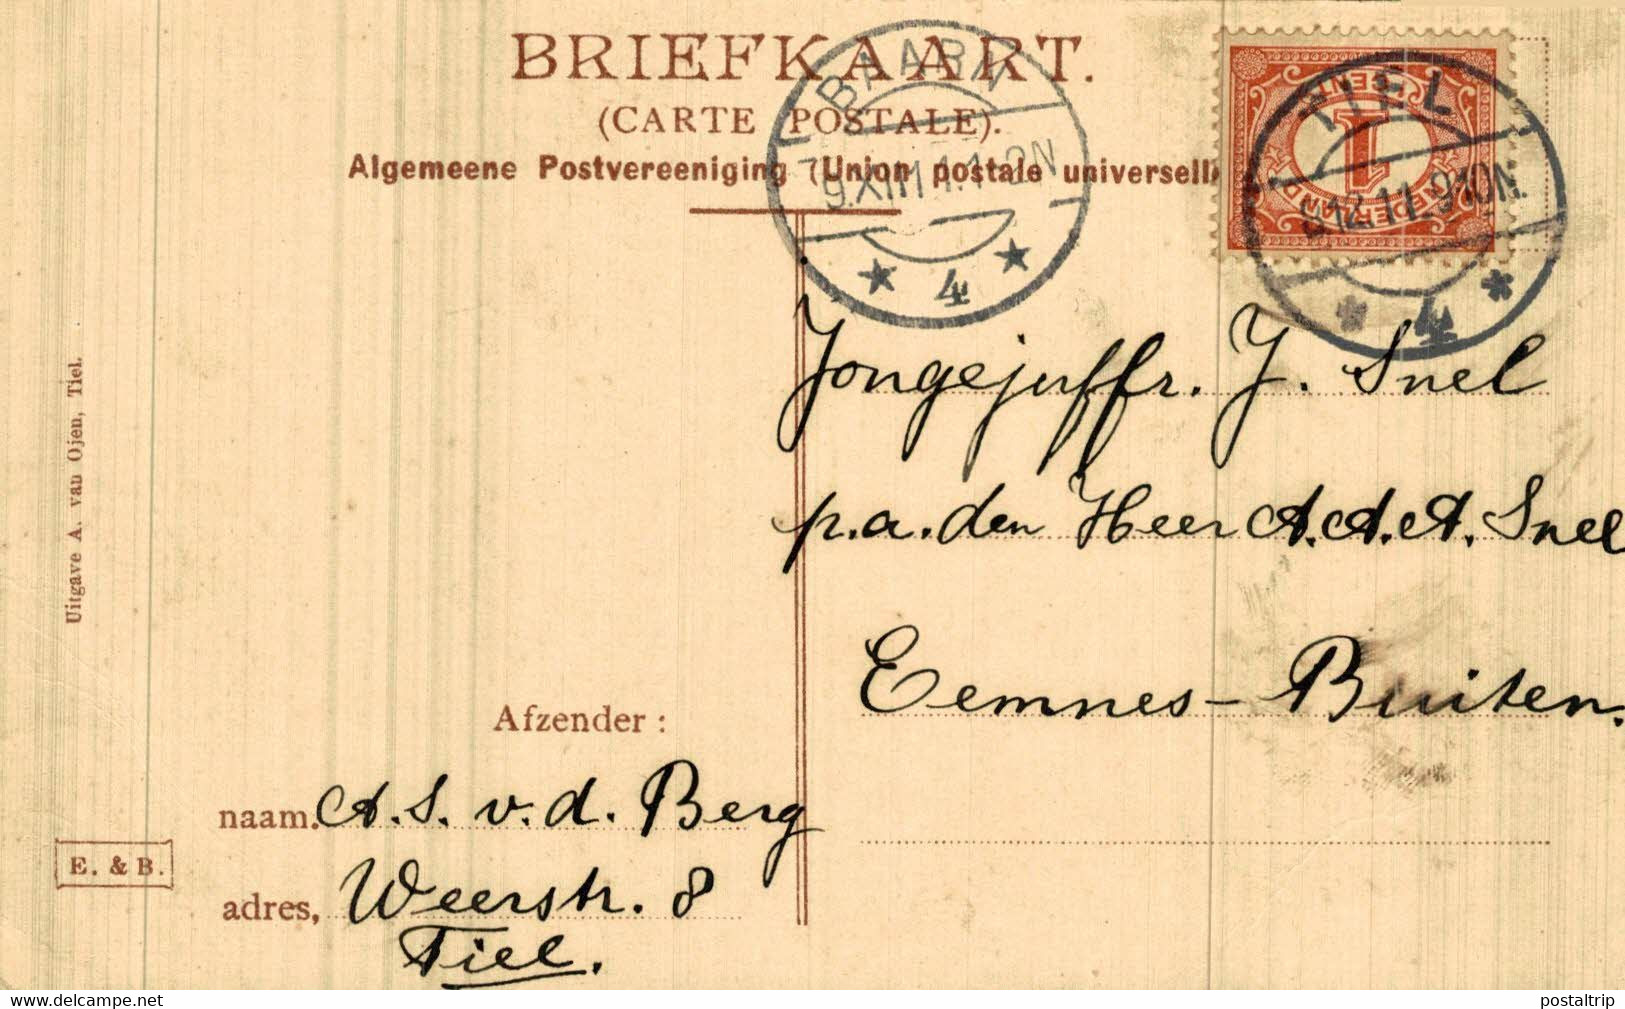 BRIEFKAART.
(CARTE POSTALE).
Algemeene Postvereeniging (Union postale universelle
BAARN
4
TIEL
9.12.11.9-10N.
4
1
CENT
NEDERLAND
Jongejuffr. J. Snel
p.a. den Heer A.A.A. Snel
Eemnes-Buiten.
Afzender :
naam. A. S. v. d. Berg
adres, Weerstr. 8
Tiel.
Uitgave A. van Ojen, Tiel.
E. & B.
www.delcampe.net
postaltrip